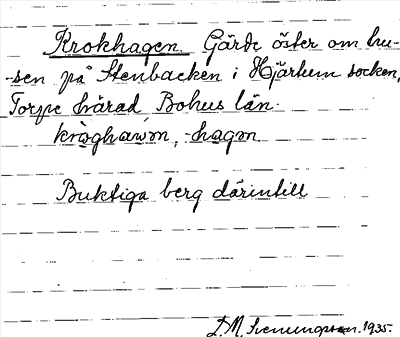 Krokhagen. Gärde öster om hu-
-sen på Stenbacken i Hjärtum socken,
Torpe härad Bohus län.
kròghawm, -hagm
Buktiga berg därintill
D.M. Svenungsson. 1935.